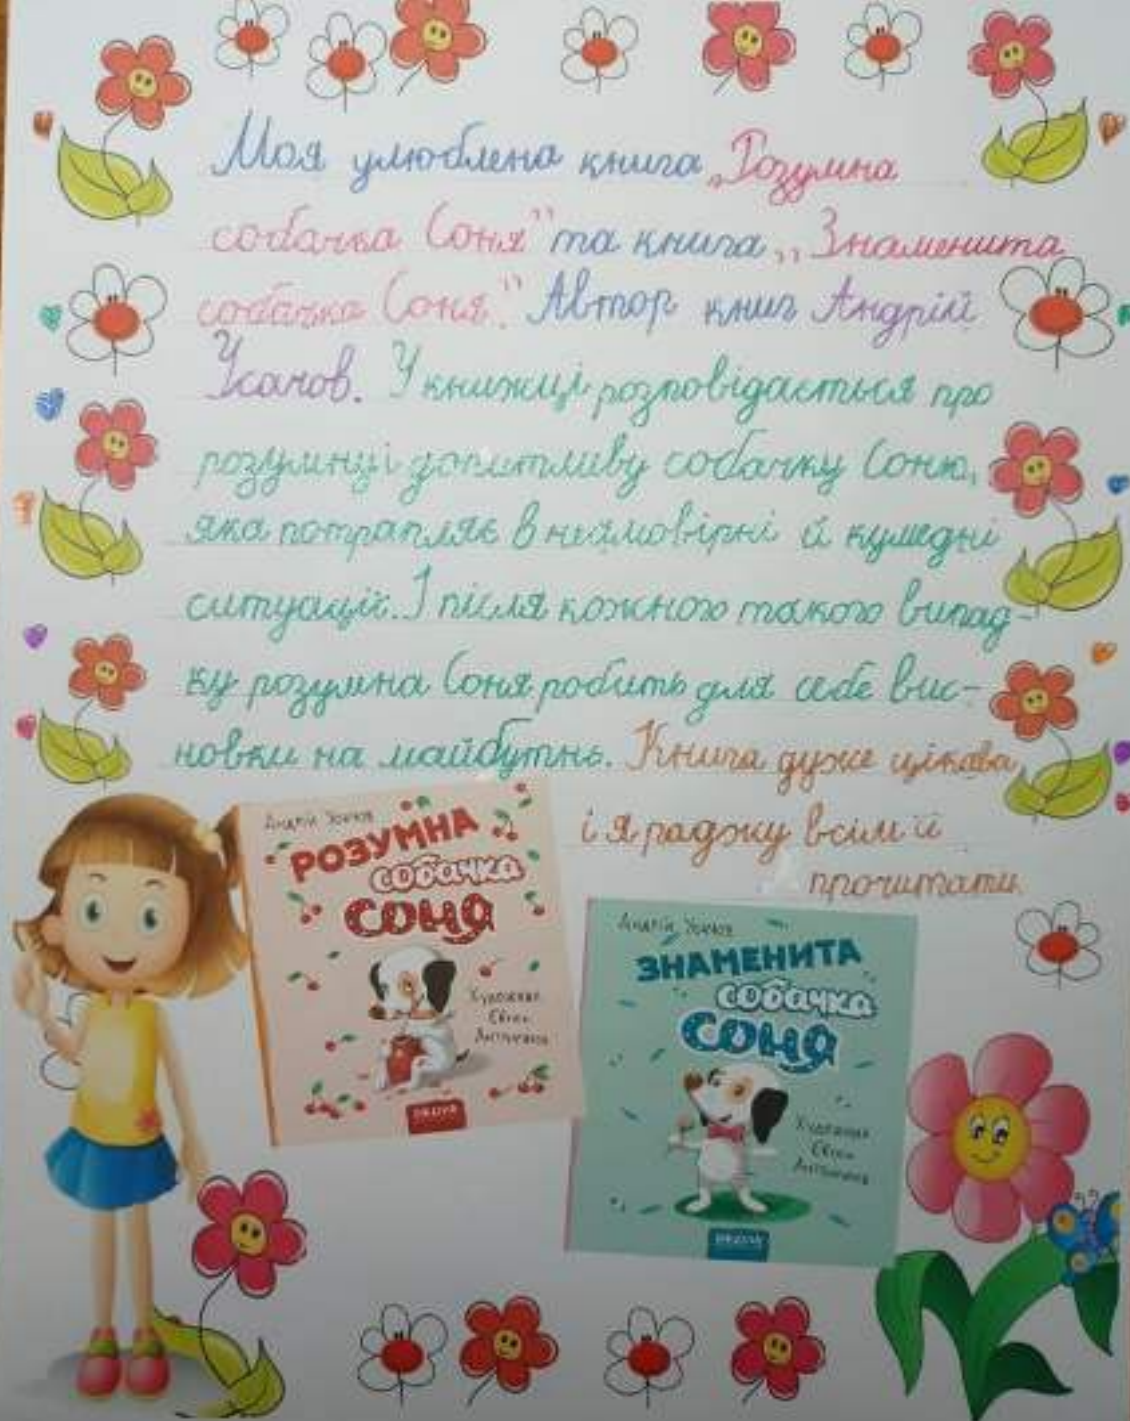 Моя улюблена книга „Розумна
собачка Соня" та книга „Знаменита
собачка Соня." Автор книг Андрій
Усачов. У книжці розповідається про
розумну і допитливу собачку Соню,
яка потрапляє в неймовірні й кумедні
ситуації. І після кожного такого випад-
ку розумна Соня робить для себе вис-
новки на майбутнє. Книга дуже цікава,
і я раджу всім її
прочитати.
Андрій Усачов
РОЗУМНА
собачка
СОНЯ
Художник
Євген
Антоненков
Андрій Усачов
ЗНАМЕНИТА
собачка
СОНЯ
Художник
Євген
Антоненков